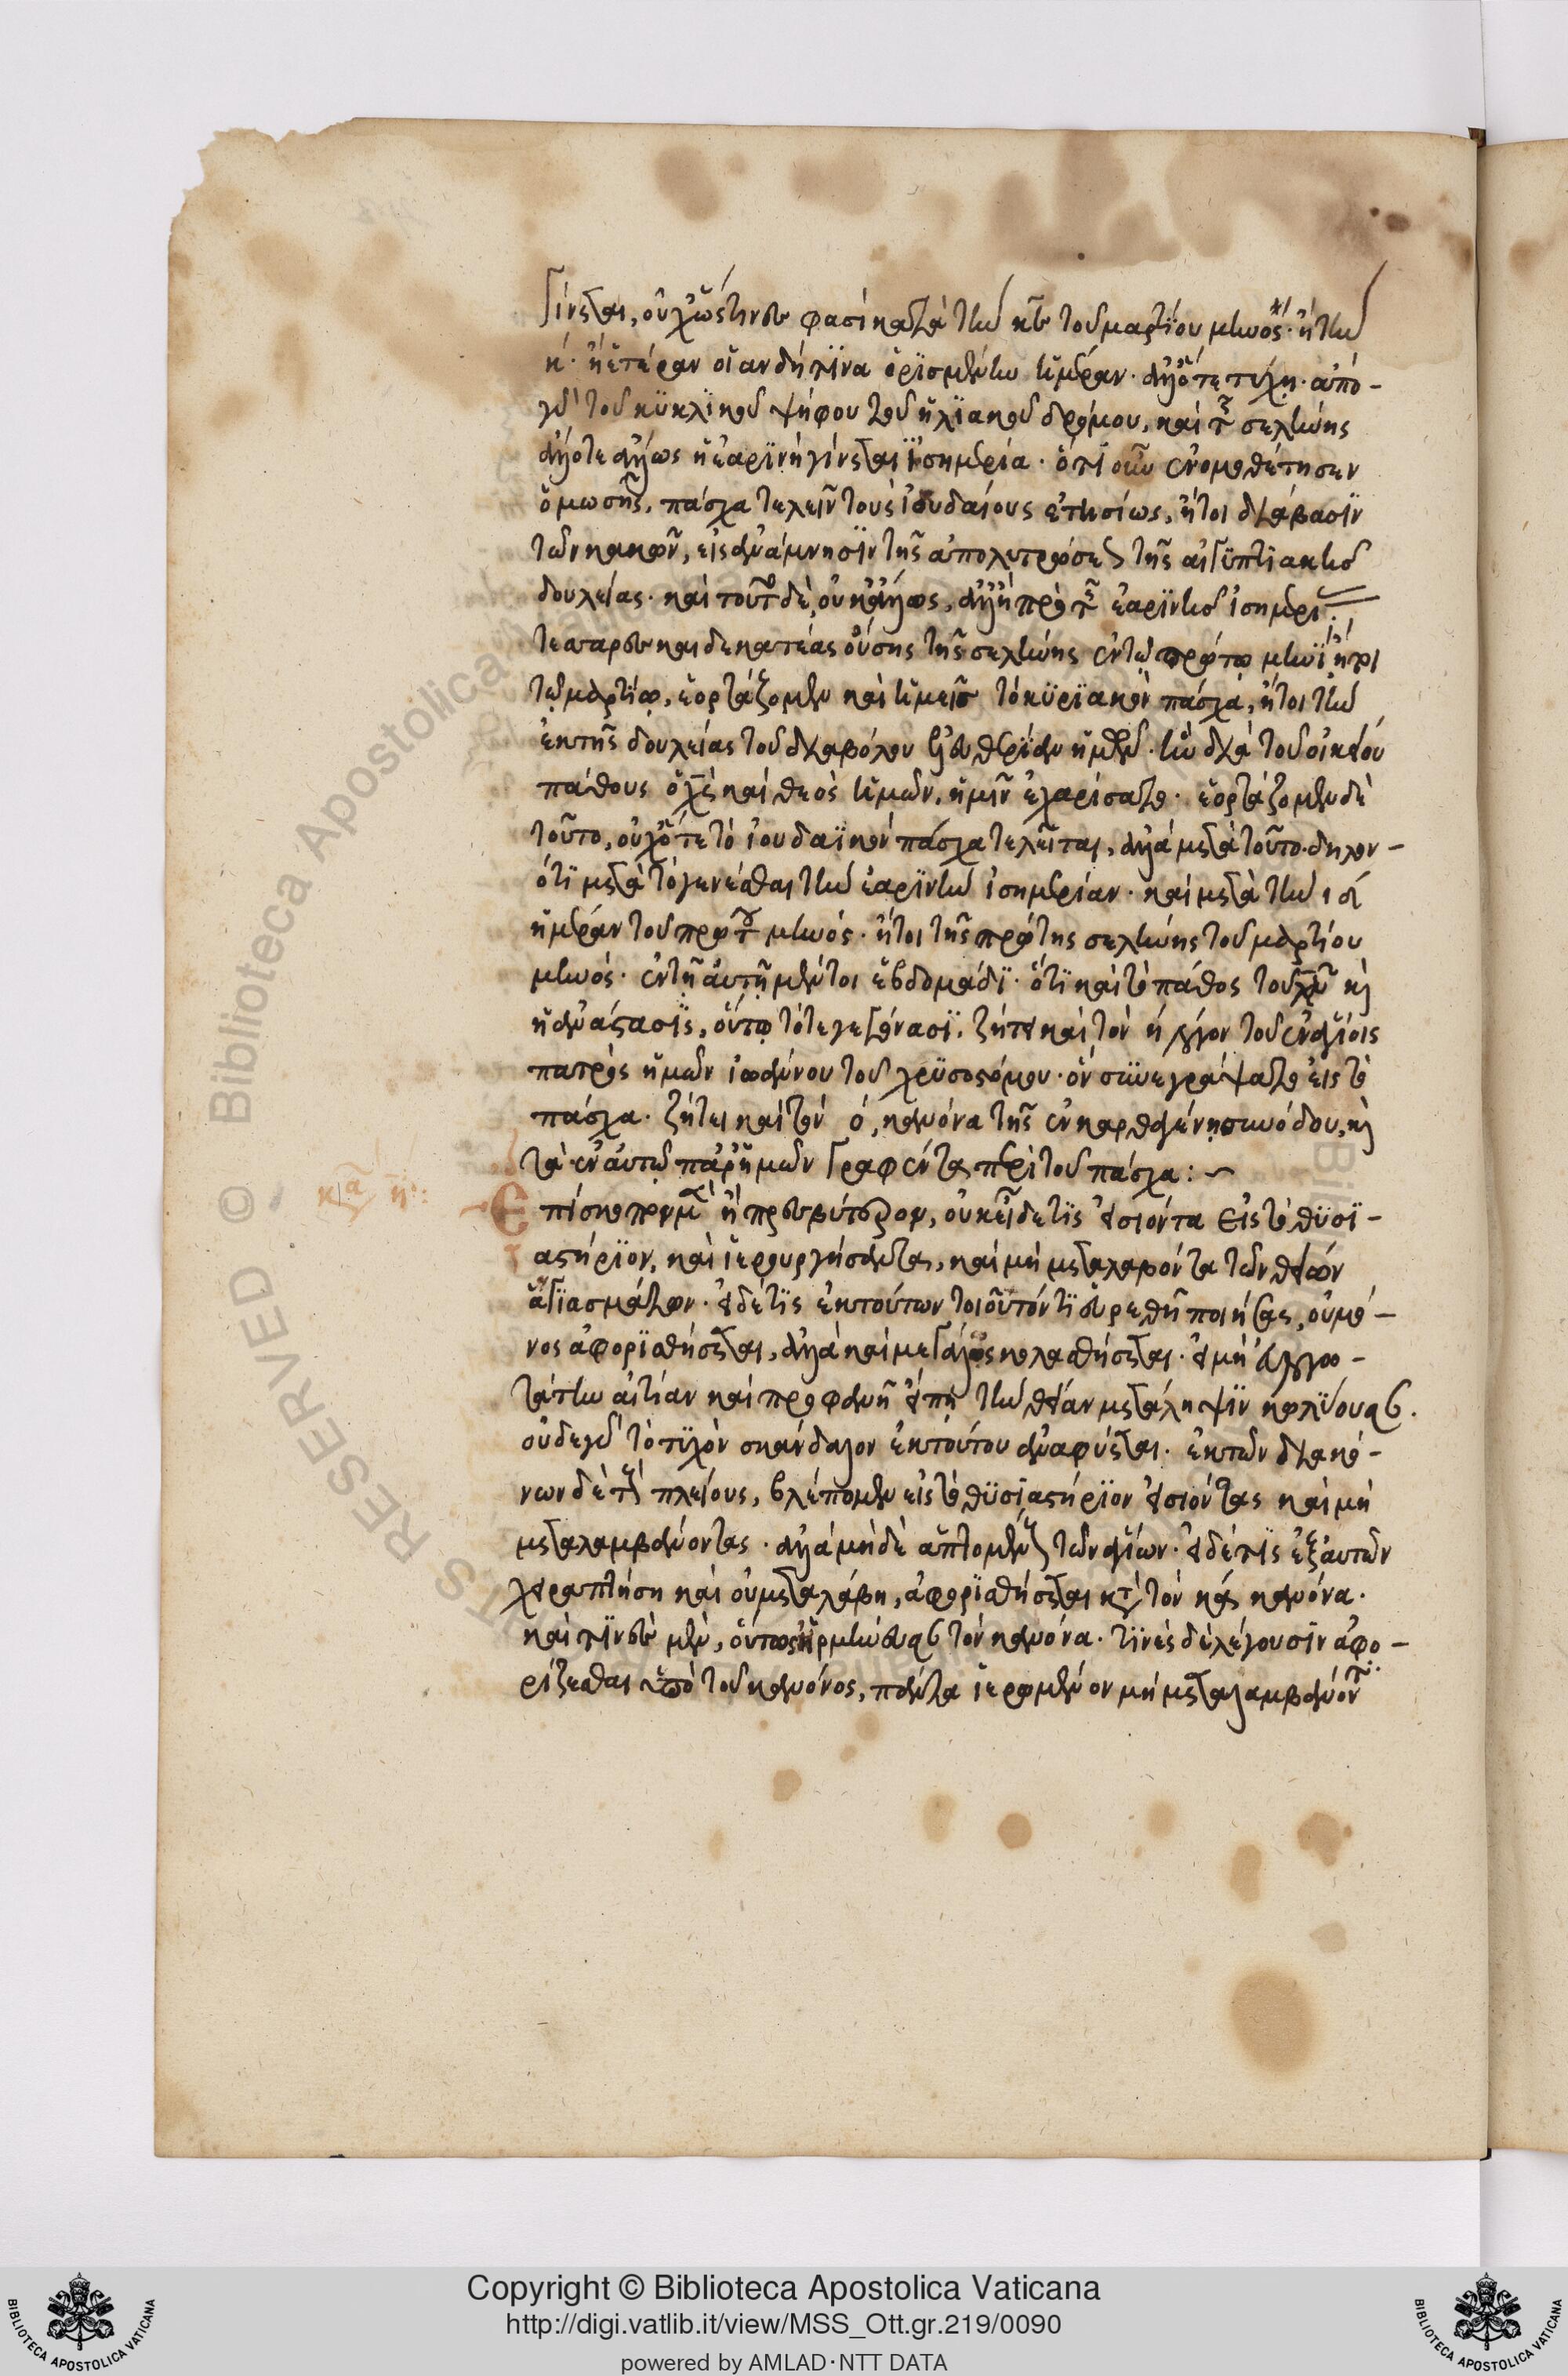 γίνεται, οὐχ ὥς τινες φασὶ κατὰ τὴν κε τοῦ μαρτίου μηνός· ἢ τὴν
κ· ἢ ἑτέραν οἵαν δή τινα ὡρισμένην ἡμέραν· ἀλλ' ὅτε τύχῃ· ἀπὸ -
γὰρ τοῦ κυκλικοῦ ψήφου τοῦ ἡλιακοῦ δρόμου, καὶ τῆς σελήνης
ἄλλοτε ἄλλως ἡ ἐαρινὴ γίνεται ἰσημερία· ὅτι οὖν ἐνομοθέτησεν
ὁ μωσῆς, πάσχα τελεῖν τοὺς ἰουδαίους ἐτησίως, ἤτοι διάβασιν
τῶν κακῶν, εἰς ἀνάμνησιν τῆς ἀπολυτρώσεως τῆς αἰγυπτιακῆς
δουλείας· καὶ τοῦτο δὲ, οὐκ ἄλλως, ἀλλ' ἢ πρὸ τῆς ἐαρινῆς ἰσημερίας
τεσσαρεσκαιδεκαταίας οὔσης τῆς σελήνης ἐν τῷ πρώτῳ μηνὶ ἤτοι
τῷ μαρτίῳ, ἑορτάζομεν καὶ ἡμεῖς τὸ κυριακὸν πάσχα, ἤτοι τὴν
ἐκ τῆς δουλείας τοῦ διαβόλου ἐλευθερίαν ἡμῶν· ἣν διὰ τοῦ οἰκείου
πάθους ὁ χς καὶ θεὸς ἡμῶν, ἡμῖν ἐχαρίσατο· ἑορτάζομεν δὲ
τοῦτο, οὐχ ὅτε τὸ ἰουδαϊκὸν πάσχα τελεῖται, ἀλλὰ μετὰ τοῦτο· δηλον -
ότι μετὰ τὸ γενέσθαι τὴν ἐαρινὴν ἰσημερίαν· καὶ μετὰ τὴν ιδ
ἡμέραν τοῦ πρώτου μηνός· ἤτοι τῆς πρώτης σελήνης τοῦ μαρτίου
μηνός· ἐν τῇ αὐτῇ μέντοι ἑβδομάδι· ὅτι καὶ τὸ πάθος τοῦ χυ καὶ
ἡ ἀνάστασις, οὕτω τότε γεγόνασι. ζήτει καὶ τὸν η λόγον τοῦ ἐν ἁγίοις
πατρὸς ἡμῶν ἰωάννου τοῦ χρυσοστόμου· ὃν συνεγράψατο εἰς τὸ
πάσχα· ζήτει καὶ τὸν ο, κανόνα τῆς ἐν καρθαγένῃ συνόδου, καὶ
τὰ ἐν αὐτῷ παρ' ἡμῶν γραφέντα περὶ τοῦ πάσχα: ~
Ἐπίσκοπον μὲν ἢ πρεσβύτερον, οὐκ εἶδέ τις εἰσιόντα εἰς τὸ θυσι -
αστήριον, καὶ ἱερουργήσαντα, καὶ μὴ μεταλαβόντα τῶν θείων
ἁγιασμάτων· εἰ δέ τις ἐκ τούτων τοιοῦτόν τι εὑρεθῇ ποιήσας, οὐ μό -
νος ἀφορισθήσεται, ἀλλὰ καὶ μεγάλως κολασθήσεται· εἰ μὴ εὐλογο -
τάτην αἰτίαν καὶ προφανῆ εἴπῃ τὴν θείαν μετάληψιν κωλύουσαν.
οὐδὲ γὰρ τὸ τυχὸν σκάνδαλον ἐκ τούτου ἀναφύεται· ἐκ τῶν διακό -
νων δὲ τοὺς πλείους, βλέπομεν εἰς τὸ θυσιαστήριον εἰσιόντας καὶ μὴ
μεταλαμβάνοντας· ἀλλὰ μηδὲ ἁπτομένους τῶν ἁγίων· εἰ δέ τις ἐξ αὐτῶν
χειραπτήσῃ καὶ οὐ μεταλάβῃ, ἀφορισθήσεται κατὰ τὸν κα κανόνα.
καί τινες μὲν, οὕτως ἡρμήνευσαν τὸν κανόνα· τινὲς δὲ λέγουσιν ἀφο -
ρίζεσθαι ὑπὸ τοῦ κανόνος, πάντα ἱερωμένον μὴ μεταλαμβάνοντα
Copyright © Biblioteca Apostolica Vaticana
http://digi.vatlib.it/view/MSS_Ott.gr.219/0090
powered by AMLAD·NTT DATA
BIBLIOTECA APOSTOLICA VATICANA
BIBLIOTECA APOSTOLICA VATICANA